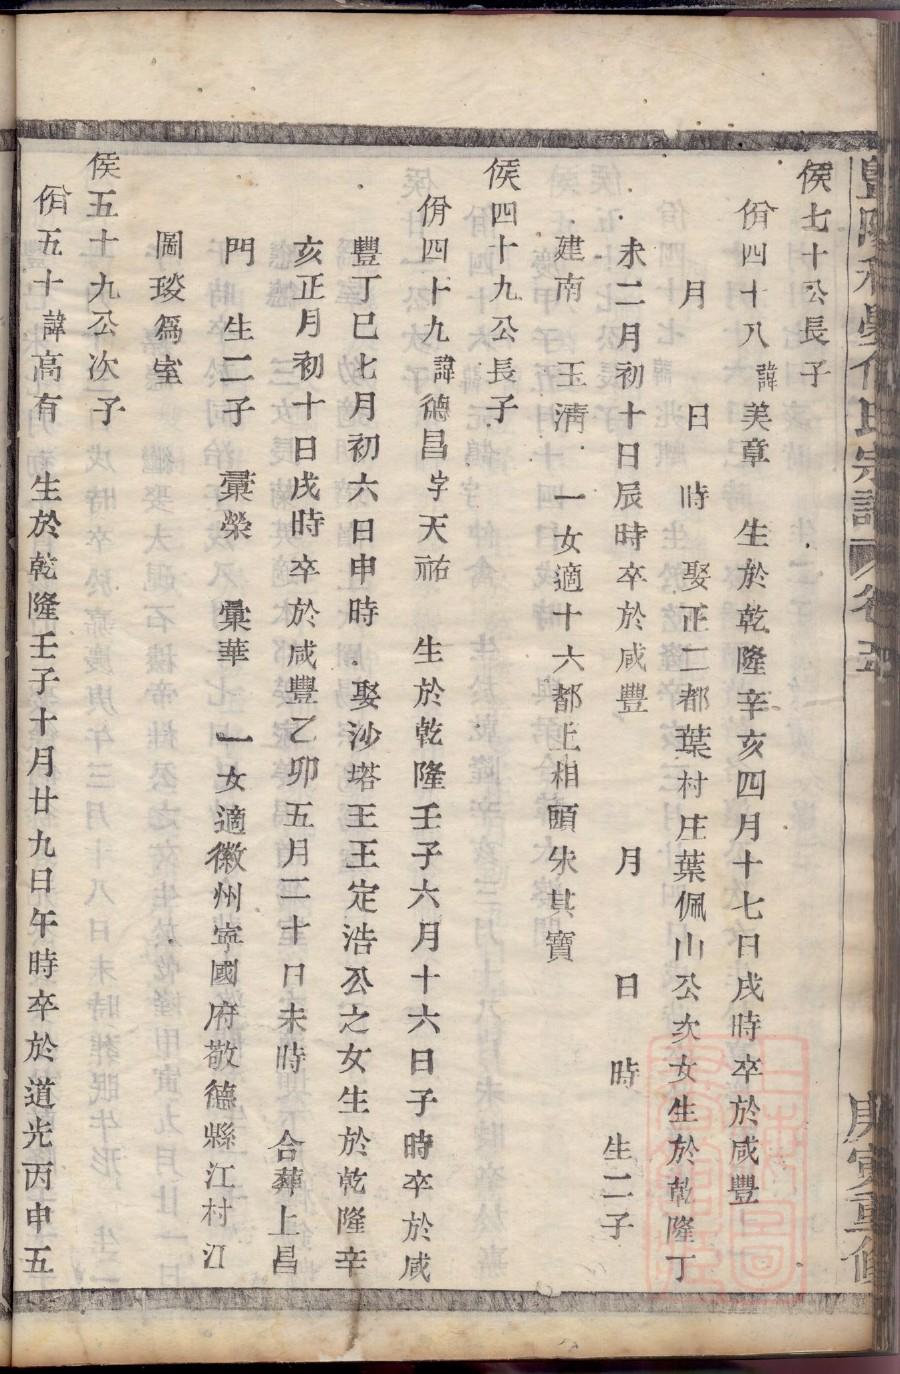 侯七十公長子
佾四十八諱美章 生於乾隆辛亥四月十七日戌時卒於咸豐
月 日 時 娶正二都葉村庄葉佩山公次女生於乾隆丁
未二月初十日辰時卒於咸豐 月 日 時 生二子
建南 玉淸 一女適十六都上相頭朱其寶
侯四十九公長子
佾四十九諱德昌字天祐 生於乾隆壬子六月十六日子時卒於咸
豐丁巳七月初六日申時 娶沙塔王王定浩公之女生於乾隆辛
亥正月初十日戌時卒於咸豐乙卯五月二十日未時 合葬上昌
門 生二子 彙榮 彙華 一女適徽州寧國府敬德縣江村江
圖琰爲室
侯五十九公次子
佾五十諱高有 生於乾隆壬子十月廿九日午時卒於道光丙申五
氏宗譜 卷五 庚寅重修